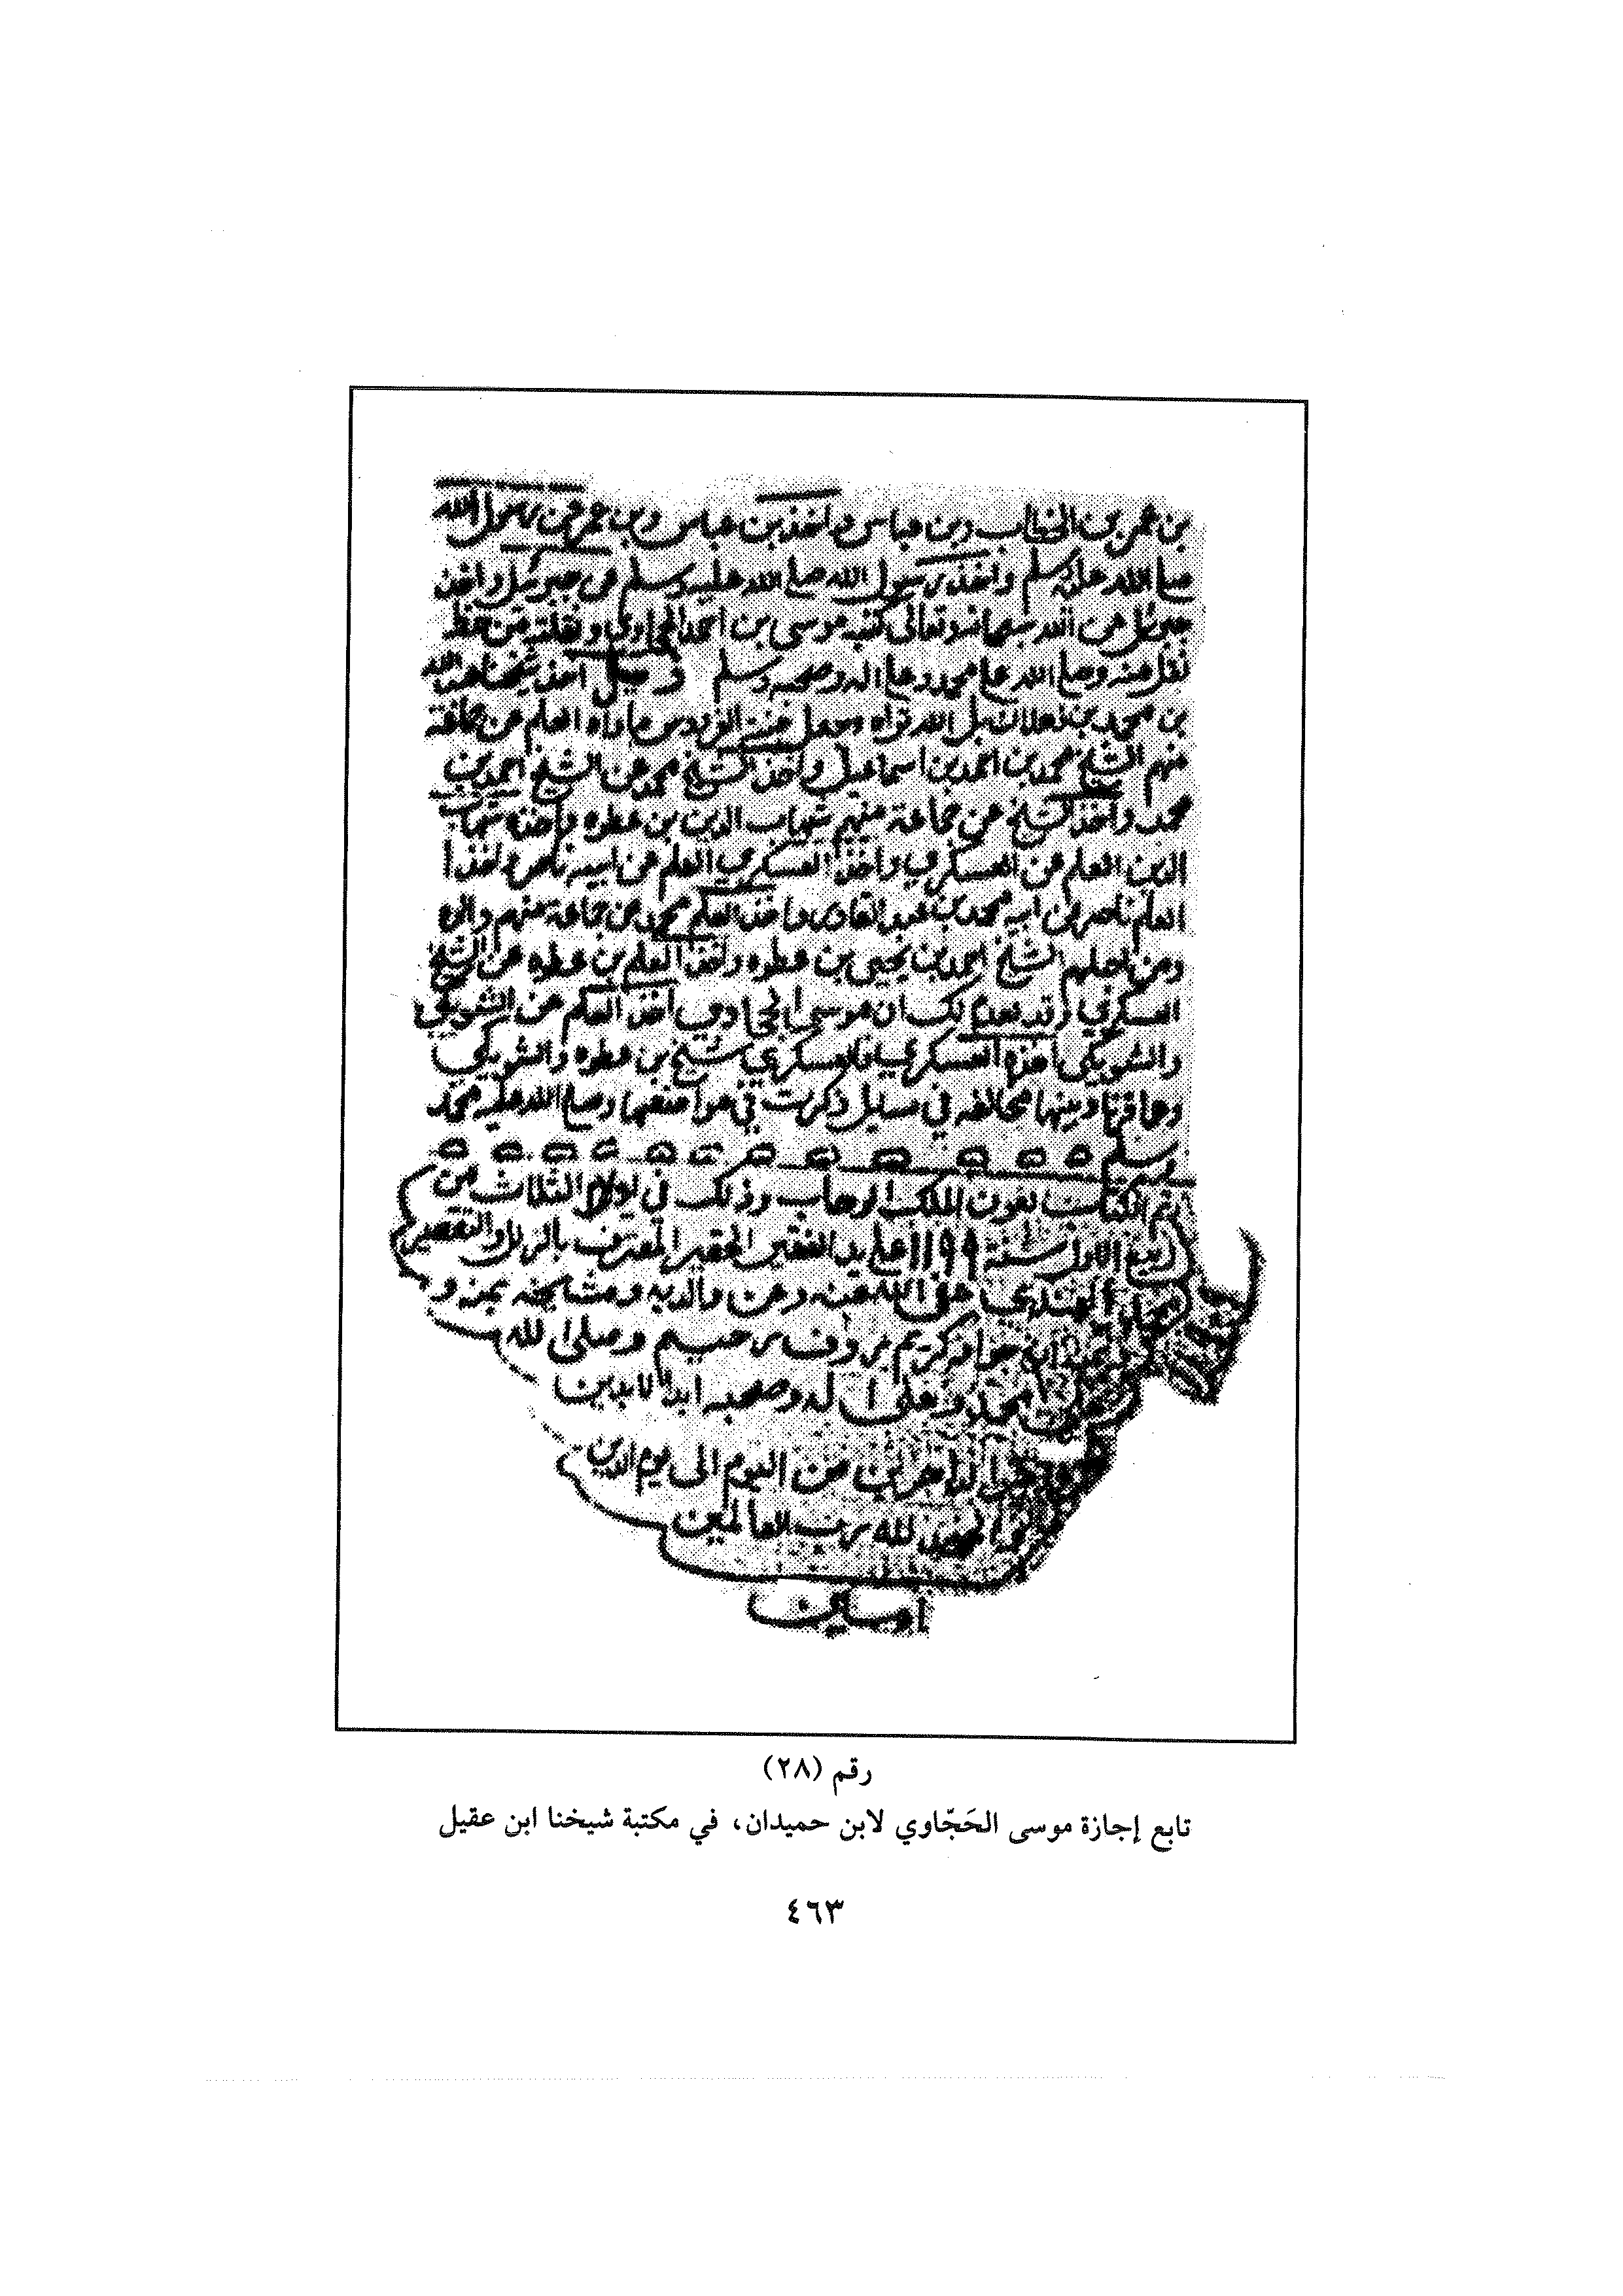 بن عمر بن الخطاب وبن عباس واخذ بن عباس وبن عمر عن رسول الله
صلى الله عليه وسلم واخذ رسول الله صلى الله عليه وسلم عن جبريل واخذ
جبريل عن الله سبحانه وتعالى كتبه موسى بن احمد الحجاوي ونقلته من خط
نقل منه وصلى الله على محمد وعلى اله وصحبه وسلم اخذ شيخنا عبد الله
بن محمد بن ذهلان بل الله ثراه وجعل جنة الفردوس ماواه العلم عن
منهم الشيخ محمد بن احمد بن اسماعيل واخذ الشيخ محمد عن الشيخ احمد بن
محمد واخذ الشيخ عن جماعة منهم شهاب الدين بن عطوه واخذه شهاب
الدين العلم عن العسكري واخذ العسكري العلم عن ابيه ناصر واخذ
العلم ناصر عن ابيه محمد بن عبد القادر واخذ العلم محمد عن جماعة منهم والده
ومن اجلهم الشيخ احمد بن يحيى بن عطوه واخذ العلم بن عطوه عن الشيخ
العسكري وقد تقدم لك ان موسى الحجاوي اخذ العلم عن الشويكي
والشويكي اخذه العسكري فالعسكري شيخ بن عطوه والشويكي
وبينهما مخالفه في مسايل ذكرت في مواضعها وصلى الله عليه محمد
وسلم
تم الكتاب بعون الملك الوهاب وذلك في الثلاث من
ربيع الاول سنة ١١٩٩ على يد الفقير الحقير المعترف بالزلل والتقصير
عفى الله عنه وعن والديه ومشايخه بمنه و
جواد كريم رؤف رحيم وصلى الله
محمد وعلى اله وصحبه ابد الابدين
من اليوم الى يوم الدين
والحمد لله رب العالمين
امين
رقم (٢٨)
تابع إجازة موسى الحَجّاوي لابن حميدان، في مكتبة شيخنا ابن عقيل
٤٦٣